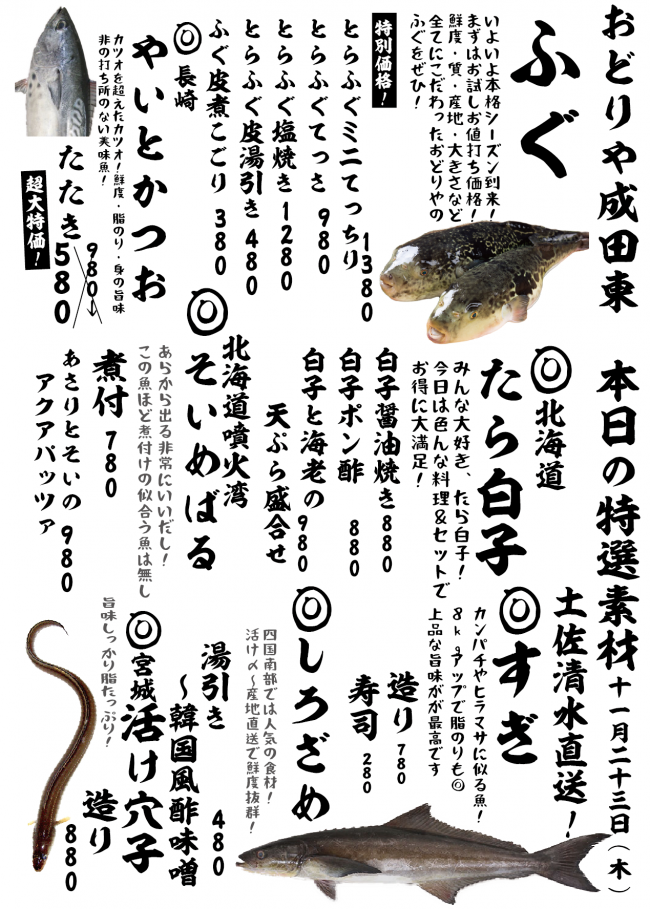 おどりや成田東　本日の特選素材十一月二十三日（木）
ふぐ
いよいよ本格シーズン到来！
まずはお試しお値打ち価格！
鮮度・質・産地・大きさなど
全てにこだわったおどりやの
ふぐをぜひ！
特別価格！
とらふぐミニてっちり 1380
とらふぐてっさ 980
とらふぐ塩焼き 1280
とらふぐ皮湯引き 480
ふぐ皮煮こごり 380
◎長崎
やいとかつお
カツオを超えたカツオ！鮮度・脂のり・身の旨味
非の打ち所のない美味魚！
たたき 980→580
超大特価！
◎北海道
たら白子
みんな大好き、たら白子！
今日は色んな料理&セットで
お得に大満足！
白子醤油焼き 880
白子ポン酢 880
白子と海老の
天ぷら盛合せ 980
◎北海道噴火湾
そいめばる
あらから出る非常にいいだし！
この魚ほど煮付けの似合う魚は無し
煮付 780
あさりとそいの
アクアパッツァ 980
土佐清水直送！
◎すぎ
カンパチやヒラマサに似る魚！
8kgアップで脂のりも◎
上品な旨味がが最高です
造り 780
寿司 280
◎しろざめ
四国南部では人気の食材！
活け〆〜産地直送で鮮度抜群！
湯引き
〜韓国風酢味噌 480
◎宮城 活け穴子
旨味しっかり脂たっぷり！
造り 880